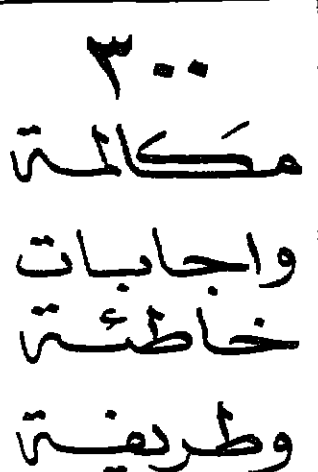 ٣٠٠
مكَالمة
واجابات
خاطئة
وطريفة